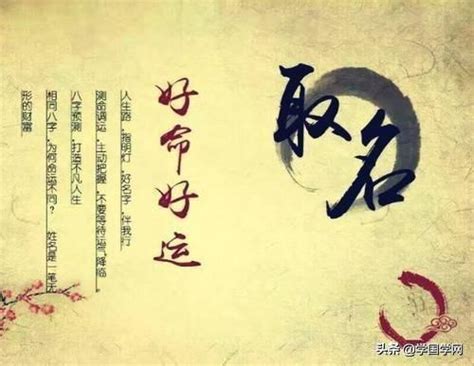 取名
好命好运
人生路,指明灯,好名字,伴我行
测命调运,主动把握,不要等待运气降临。
八字预测,打造不凡人生
相同八字,为何命运不同? 姓名是一笔无
形的财富
头条 @学国学网